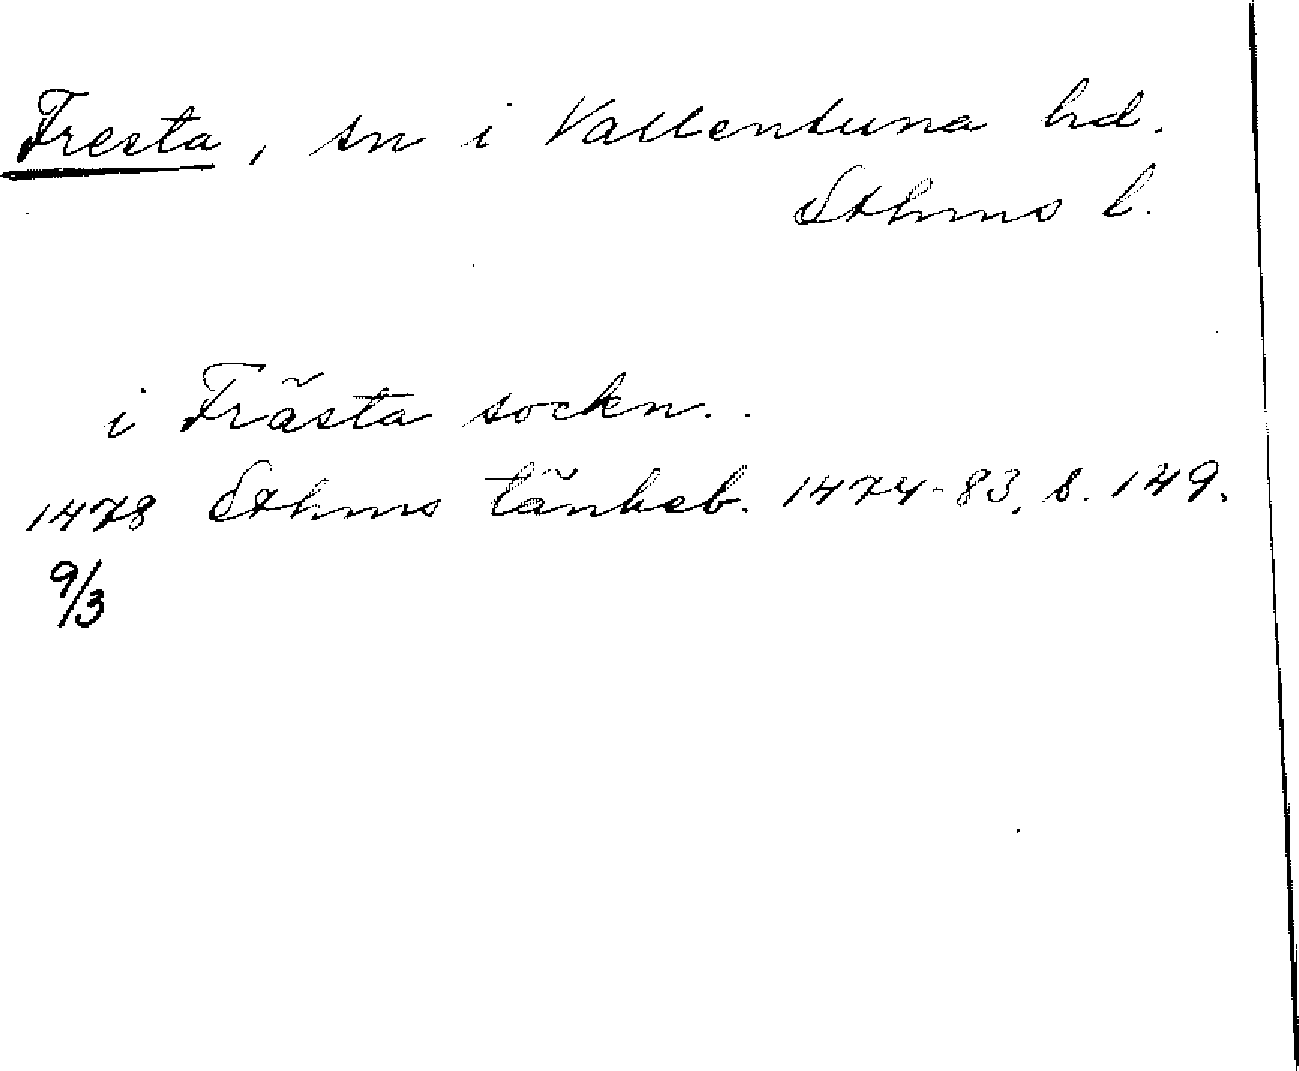 Fresta, sn i Vallentuna hd.
Sthms l.
i Frästa sockn..
1478 Sthms tänkeb. 1474-83, s. 149.
9/3